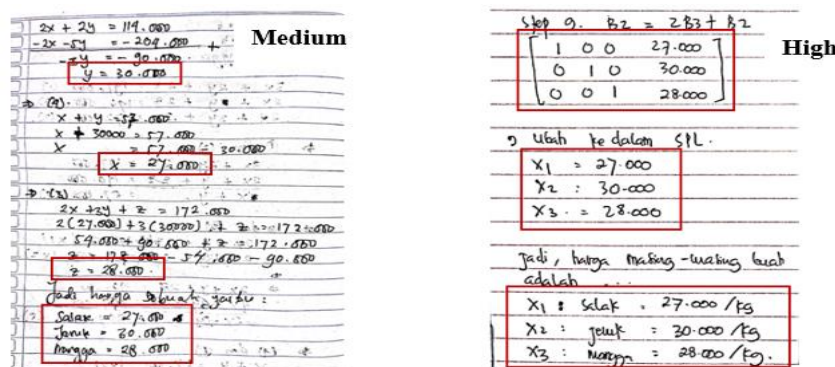 2x + 2y = 114.000
-2x -5y = -204.000 +
-3y = -90.000
y = 30.000
x + y = 57.000
x + 30000 = 57.000
x = 57.000 - 30.000
x = 27.000
2x + 3y + z = 172.000
2(27.000) + 3(30000) + z = 172.000
54.000 + 90.000 + z = 172.000
z = 172.000 - 54.000 - 90.000
z = 28.000
Jadi harga sebuah yaitu :
Salak = 27.000
Jeruk = 30.000
Mangga = 28.000
Medium
Step 9. B2 = 2B3 + B2
1 0 0 27.000
0 1 0 30.000
0 0 1 28.000
Ubah ke dalam SPL.
X1 = 27.000
X2 : 30.000
X3 . = 28.000
Jadi, harga masing-masing buah
adalah ...
X1 : Salak = 27.000 /kg
X2 : jeruk = 30.000 /kg
X3 : mangga = 28.000 /kg.
High